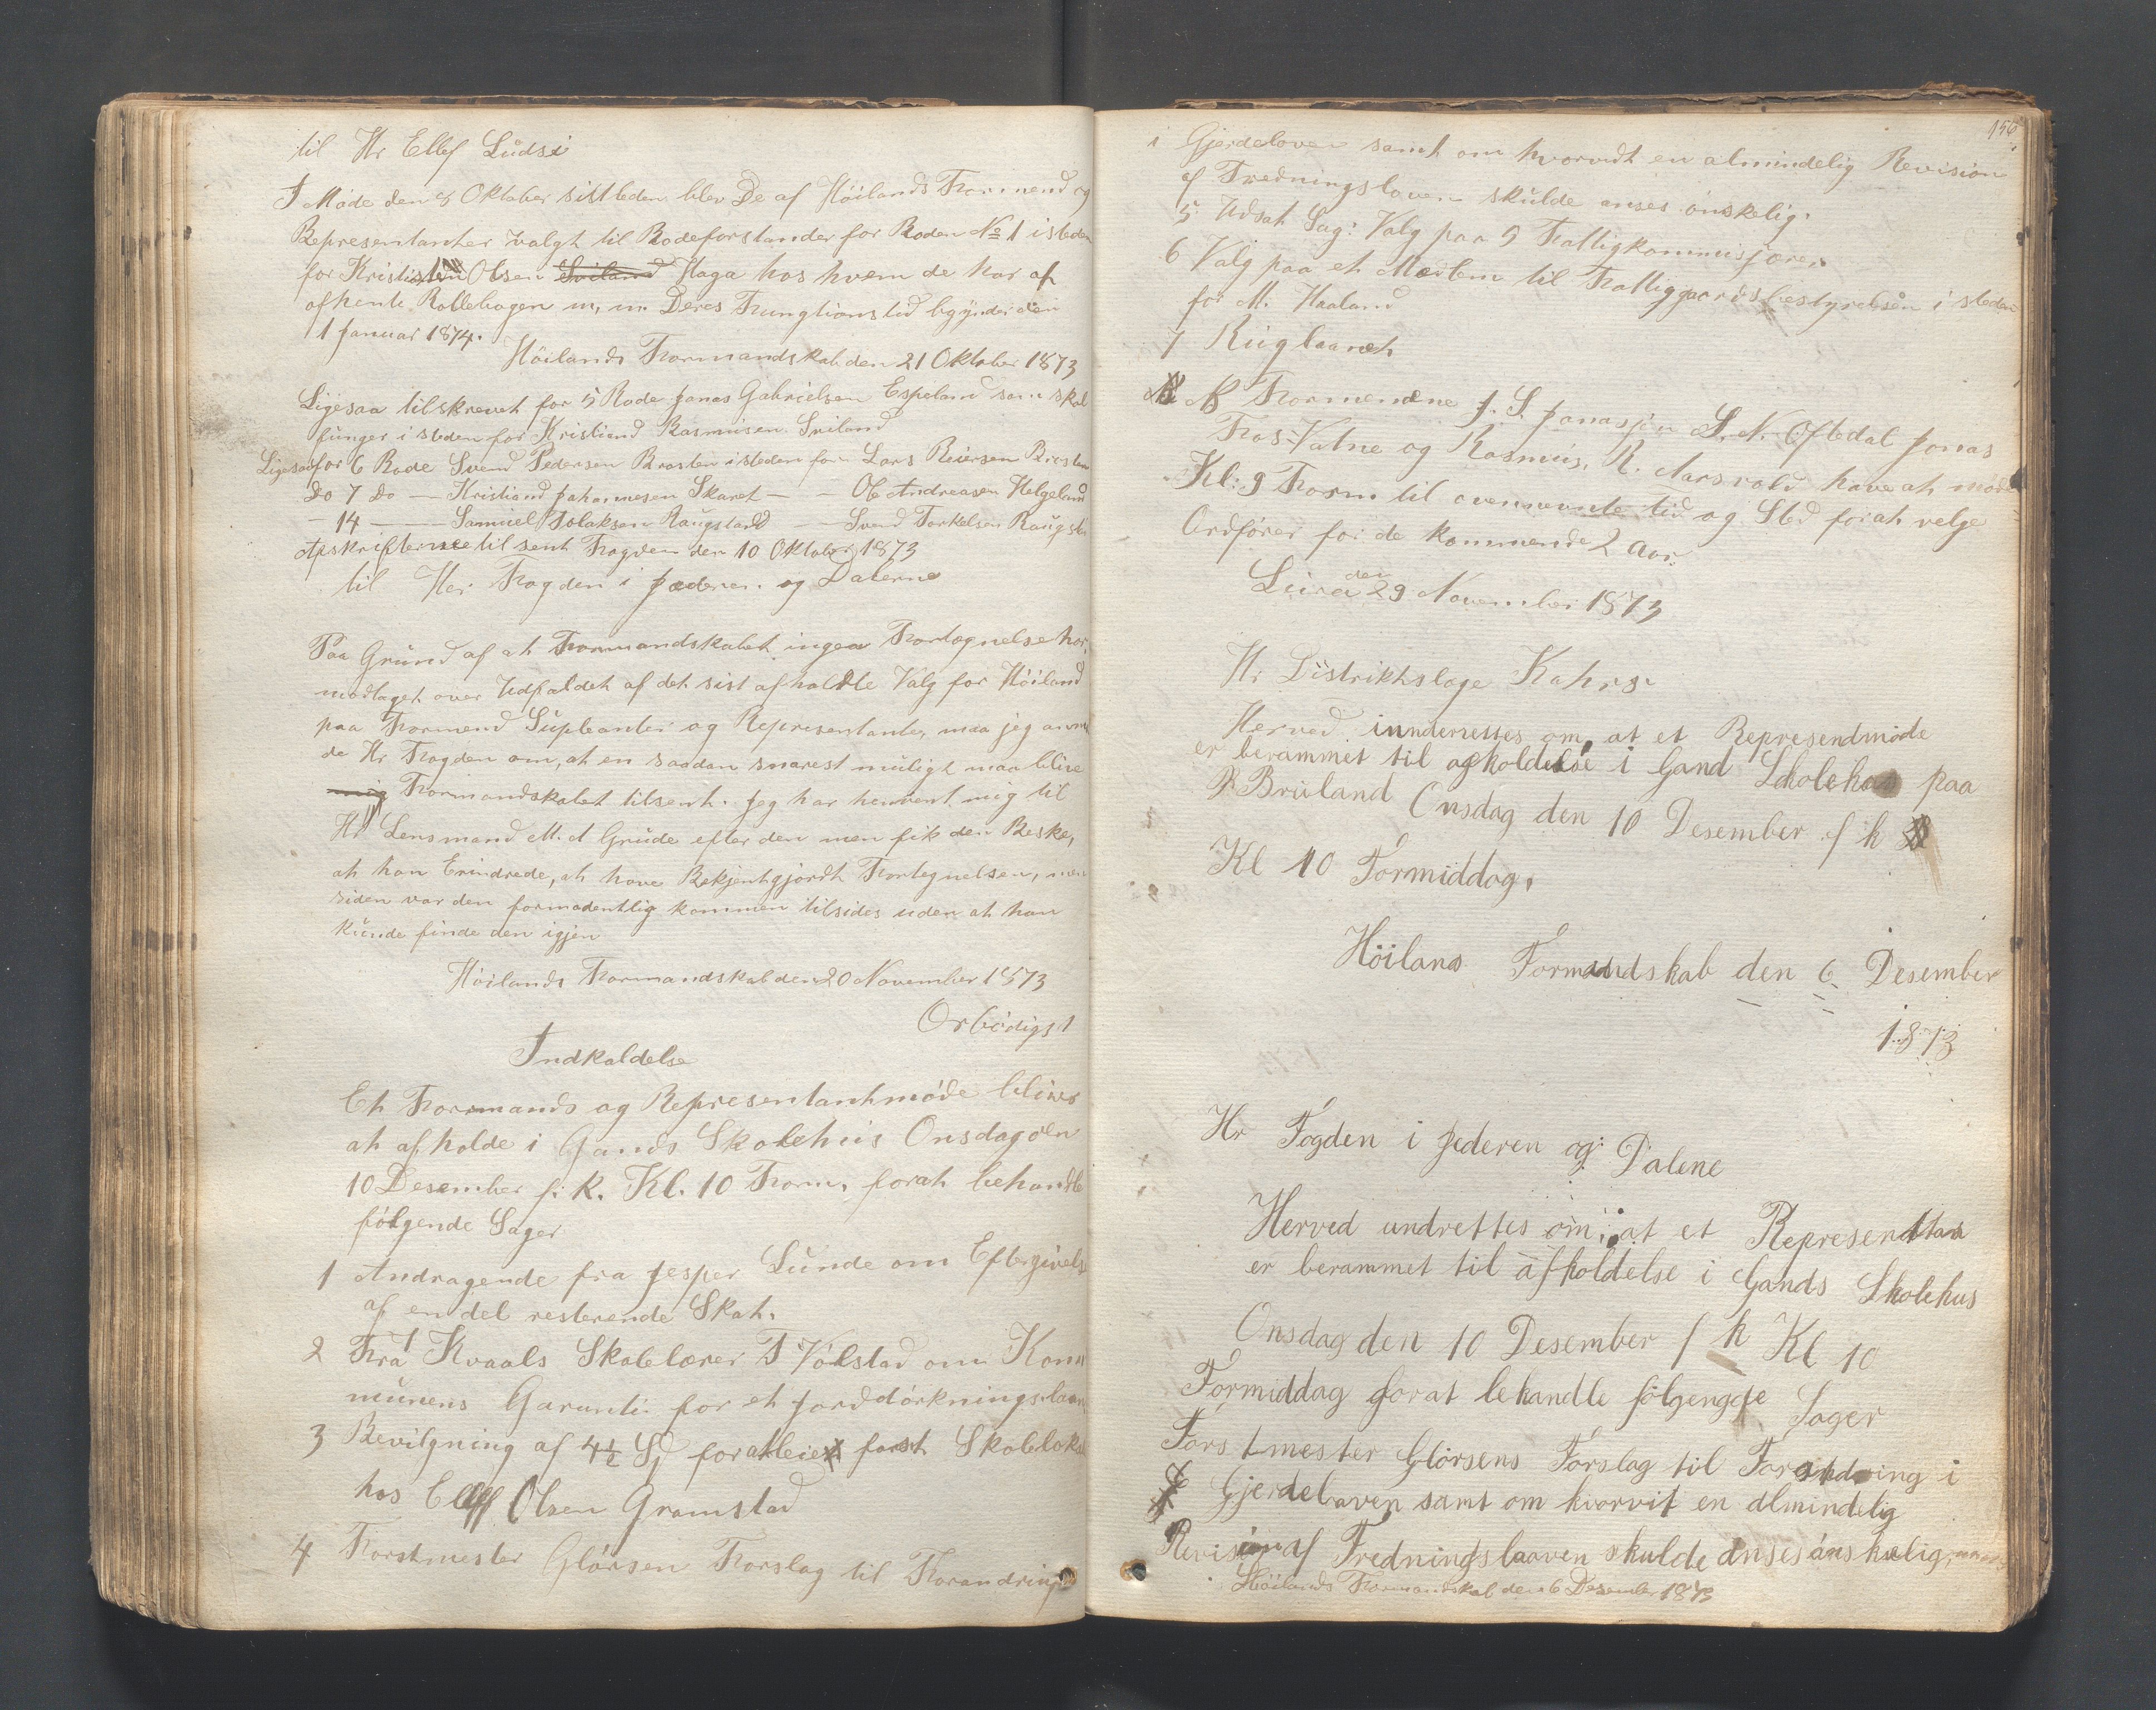 til Hr Ellef Ludsi
I Møde den 8 Oktober sistleden blev De af Høilands Formend og
Representanter valgt til Rodeforstander for Roden No 1 isteden
for Kristian Olsen Sviland Haga hos hvem de har af
afhente Rollebogen m, m. Deres Fungtionstid begynder den
1 Januar 1874.
Høilands Formandskab den 21 Oktober 1873
Ligesaa tilskrevet for 5 Rode Jonas Gabrielsen Espeland som skal
funger i steden for Kristiand Rasmusen Sviland
Ligesaa for 6 Rode Svend Pedersen Brosten isteden for Lars Reiersen Brosten
Do 7 Do — Kristiand Johannesen Skaret — - Ole Andreasen Helgeland
- 14 — — Samuel Tolaksen Raugstadd — Svend Torkelsen Raugsta
Apskrifterne tilsent Fogden den 10 Oktober 1873
til Her Fogden i Jæderen og Dalerne
Paa Grund af at Formandskabet ingen Fortegnelse har
modtaget over Udfaldet af det sist afholdte Valg for Høiland
paa Formend Supleanter og Representanter, maa jeg anmo
de Hr Fogden om, at en saadan snarest muligt maa blive
mig Formandskabet tilsent. Jeg har henvent mig til
Hr Lensmand M. A Grude efter den men fik den Beske,
at han Erindrede, at have Bekjentgjordt Fortegnelsen, men
siden var den formodentlig kommen tilsides uden at han
kunde finde den igjen
Høilands Formandskab den 20 November 1873
Ørbødigst
Indkaldelse
Et Formands og Representantmøde bliver
at afholde i Gands Skolehuis Onsdag den
10 Desember f. k. Kl. 10 Form, forat behandle
følgende Sager
1 Andragende fra Jesper Lunde om Eftergivelse
af en del resterende Skat.
2 Fra Kvaals Skolelærer T Vølstad om Kom
munens Garanti for et Jorddørkningslaan
3 Bevilgning af 4½ Sp for atleie fast Skolelokal
hos Elleff Olsen Gramstad
4 Forstmester Glørsen Forslag til Forandring
156
i Gjerdeloven samt om hvorvidt en almindelig Revision
af Fredningsloven skulde anses ønskelig.
5 Udsat Sag: Valg paa 5 Fattigkommisjærer
6 Valg paa et Medlem til Fattiggaardsbestyrelsen i steden
for M. Haaland
7 Ruglaanet
NB Formendene J. S. Jonassen L. N. Oftedal Jonas
Fos-Vatne og Rasmus R. Aarsvold have at møde
Kl: 9 Form til ovennevnte tid og Sted forat velge
Ordfører for de kommende 2 Aar.
Leira den 29 November 1873
Hr Distriktslæge Kahrs.
Herved innderettes om, at et Represendmøde
er berammet til afholdelse i Gand Skolehus paa
P Bruland Onsdag den 10 Desember f k
Kl 10 Formiddag.
Høilans Formandskab den 6 Desember
1873
Hr Fogden i Jederen og Dalene
Herved undrettes om, at et Represendtan
er berammet til afholdelse i Gands Skolehus
Onsdag den 10 Desember f k Kl 10
Formiddag forat behandle følgengde Sager
Forstmester Glørsens Forslag til Forandring i
Gjerdelaaven samt om hvorvit en almindelig
Revision af Fredningslaaven skulde anses ønskelig
Høilands Formandskab den 6 Desember 1873